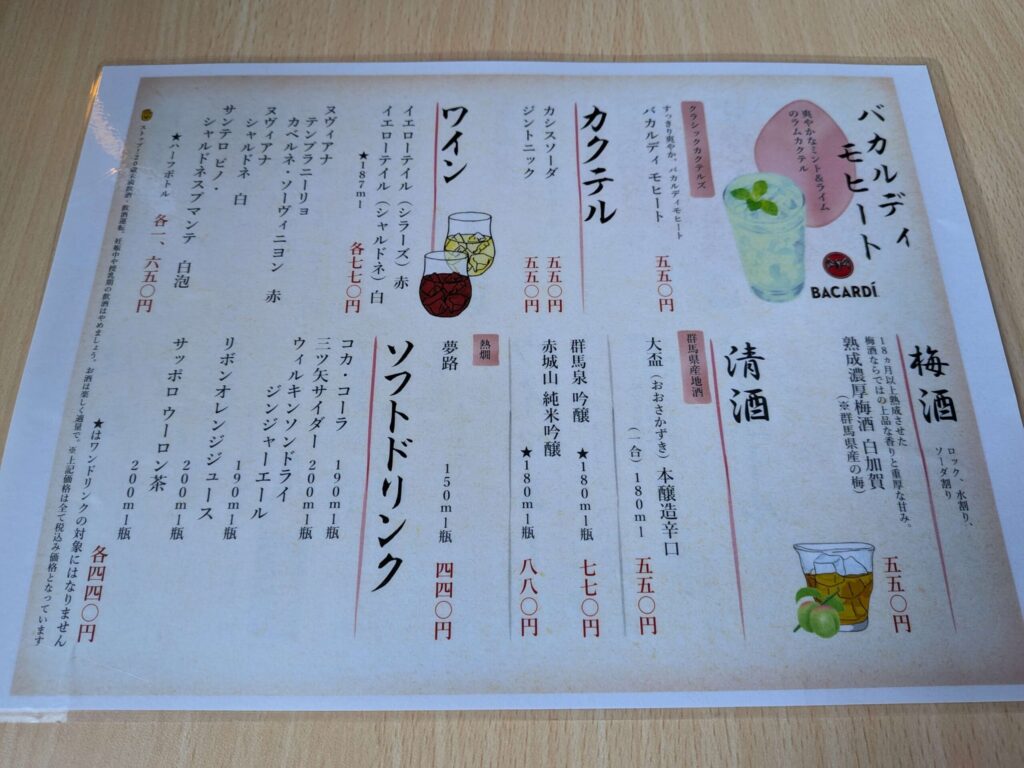 バカルディ
モヒート
爽やかなミント&ライム
のラムカクテル
BACARDÍ
クラシックカクテルズ
すっきり爽やか、バカルディモヒート
バカルディ モヒート 五五〇円
カクテル
カシスソーダ 五五〇円
ジントニック 五五〇円
ワイン
イエローテイル(シラーズ)赤
イエローテイル(シャルドネ)白
★187ml 各七七〇円
ヌヴィアナ
テンプラニーリョ
カベルネ・ソーヴィニヨン 赤
ヌヴィアナ
シャルドネ 白
サンテロ ピノ・
シャルドネスプマンテ 白泡
★ハーフボトル 各一、六五〇円
梅酒
ロック、水割り、
ソーダ割り
18ヵ月以上熟成させた
梅酒ならではの上品な香りと重厚な甘み。
熟成濃厚梅酒 白加賀
(※群馬県産の梅)
五五〇円
清酒
群馬県産地酒
大盃(おおさかずき)本醸造辛口
(一合)180ml 五五〇円
群馬泉 吟醸 ★180ml瓶 七七〇円
赤城山 純米吟醸 ★180ml瓶 八八〇円
熱燗
夢路 150ml瓶 四四〇円
ソフトドリンク
コカ・コーラ 190ml瓶
三ツ矢サイダー 200ml瓶
ウィルキンソンドライ
ジンジャーエール
190ml瓶
リボンオレンジジュース
200ml瓶
サッポロ ウーロン茶
200ml瓶
各四四〇円
★はワンドリンクの対象にはなりません
ストップ!20歳未満飲酒・飲酒運転。 妊娠中や授乳期の飲酒はやめましょう。お酒は楽しく適量で。※上記価格は全て税込み価格となっています